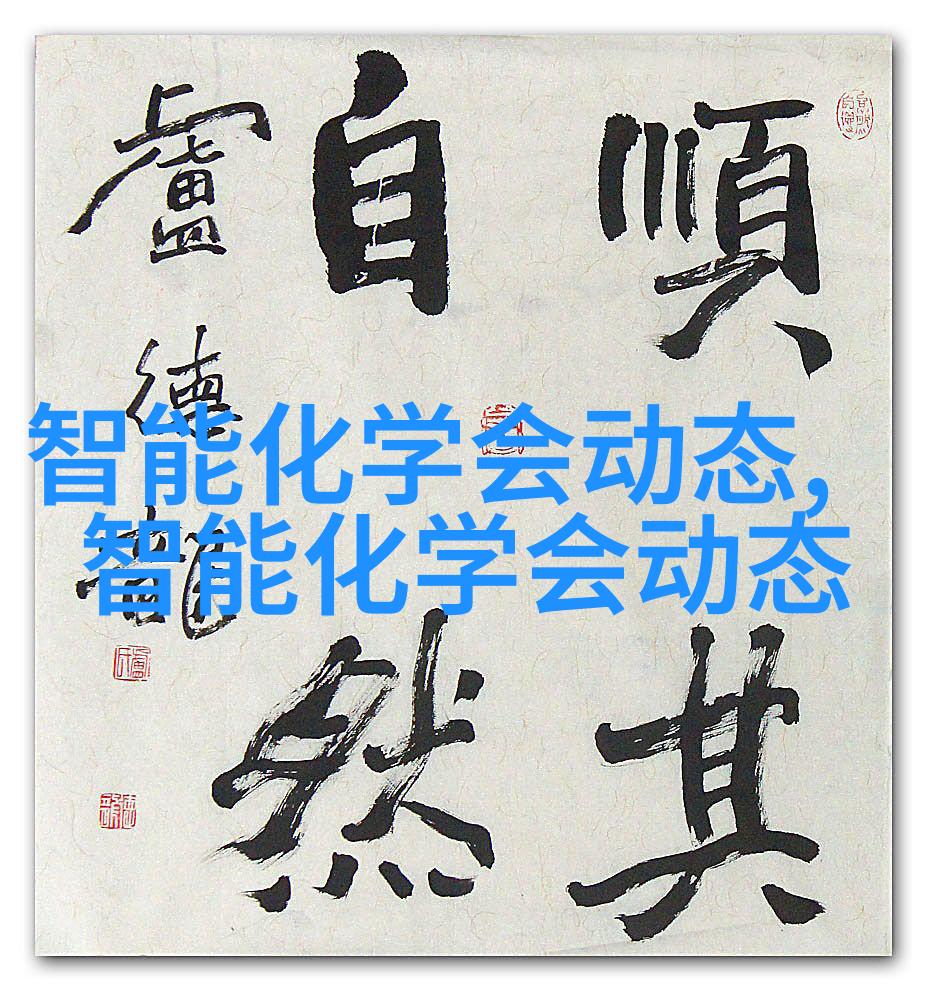 順其
自然
盧德龍
智能化学会动态,
智能化学会动态